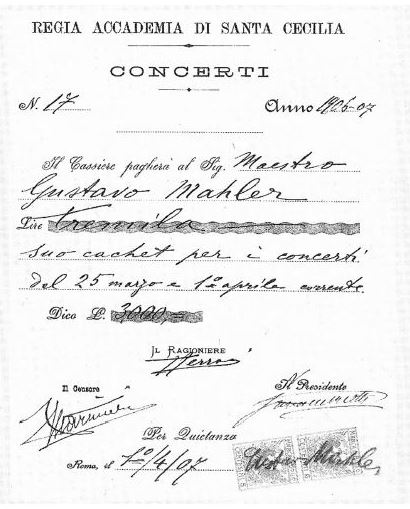 REGIA ACCADEMIA DI SANTA CECILIA
CONCERTI
N. 17 Anno 1906-07
Il Cassiere pagherà al Sig. Maestro
Gustavo Mahler
Lire Tremila
suo cachet per i concerti
del 25 marzo e 1º aprile corrente
Dico L. 3000,-
IL RAGIONIERE
Il Censore Il Presidente
Per Quietanza
Roma, il 1º/4/07 Gustav Mahler